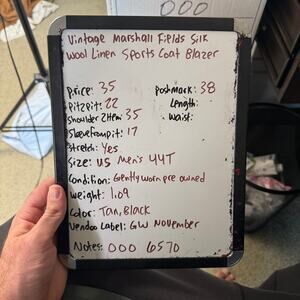 000
Vintage Marshall Fields Silk
Wool Linen Sports Coat Blazer
Price: 35
Poshmark: 38
Pit2pit: 22
Length:
Shoulder 2 Hem: 35
Waist:
Sleeve from pit: 17
Stretch: Yes
Size: US Men's 44T
Condition: Gently worn pre owned
Weight: 1.09
Color: Tan, Black
Vendoo Label: GW November
Notes: 000 6570